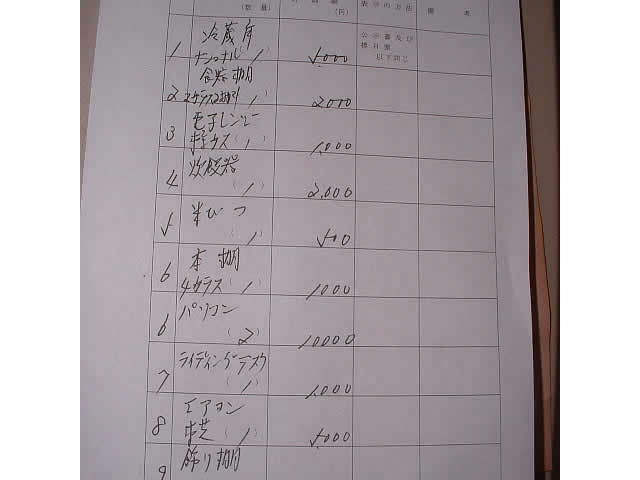 (数量) (円) 表示の方法 備 考
1 冷蔵庫
ナショナル(1) 5.000 公示書及び
標目票
以下同じ
食器棚
2 2ガラス2枚引(1) 2000
3 電子レンジ
(1) 1,000
4 炊飯器
(1) 2,000
5 米びつ
(1) 500
6 本棚
4ガラス(1) 1000
6 パソコン
(2) 10000
7 ライティングデスク
(1) 1,000
エアコン
8 (1) 5.000
9 飾り棚